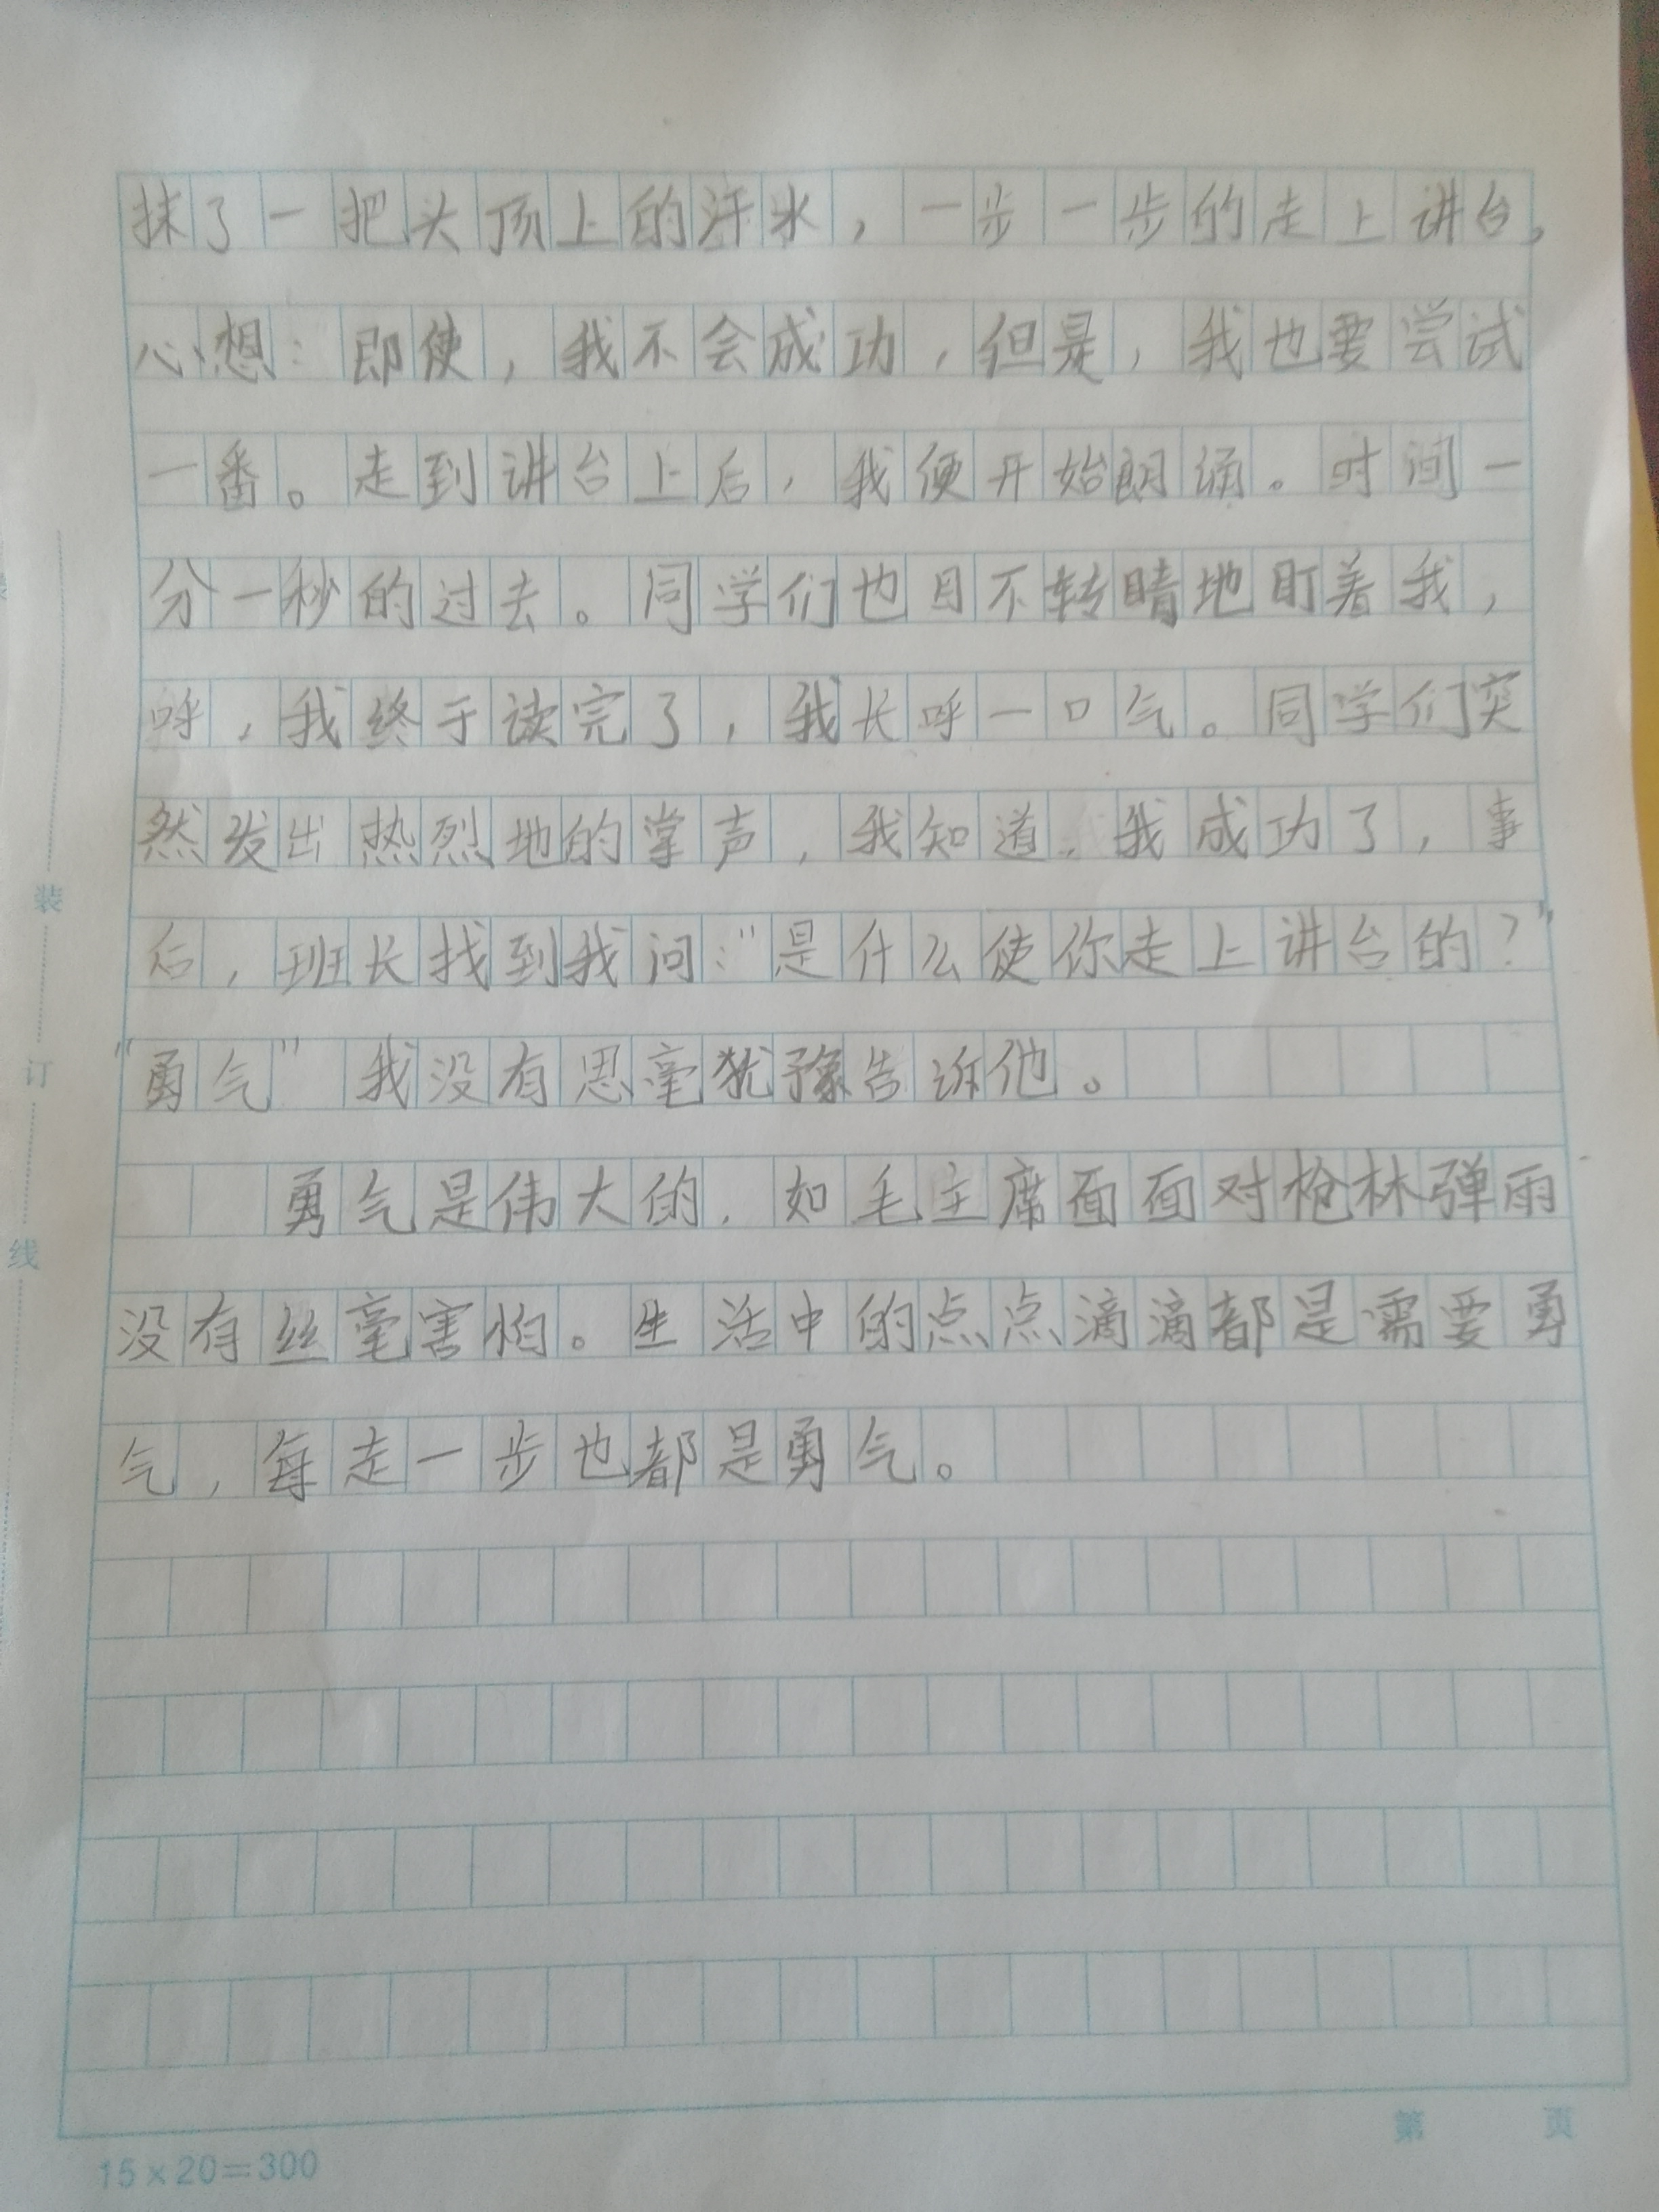 抹了一把头顶上的汗水，一步一步的走上讲台，
心想：即使，我不会成功，但是，我也要尝试
一番。走到讲台上后，我便开始朗诵。时间一
分一秒的过去。同学们也目不转睛地盯着我，
呼，我终于读完了，我长呼一口气。同学们突
然发出热烈地的掌声，我知道，我成功了，事
后，班长找到我问：“是什么使你走上讲台的？”
“勇气”我没有思毫犹豫告诉他。
勇气是伟大的，如毛主席面面对枪林弹雨
没有丝毫害怕。生活中的点点滴滴都是需要勇
气，每走一步也都是勇气。
装
订
线
15×20=300
第 页